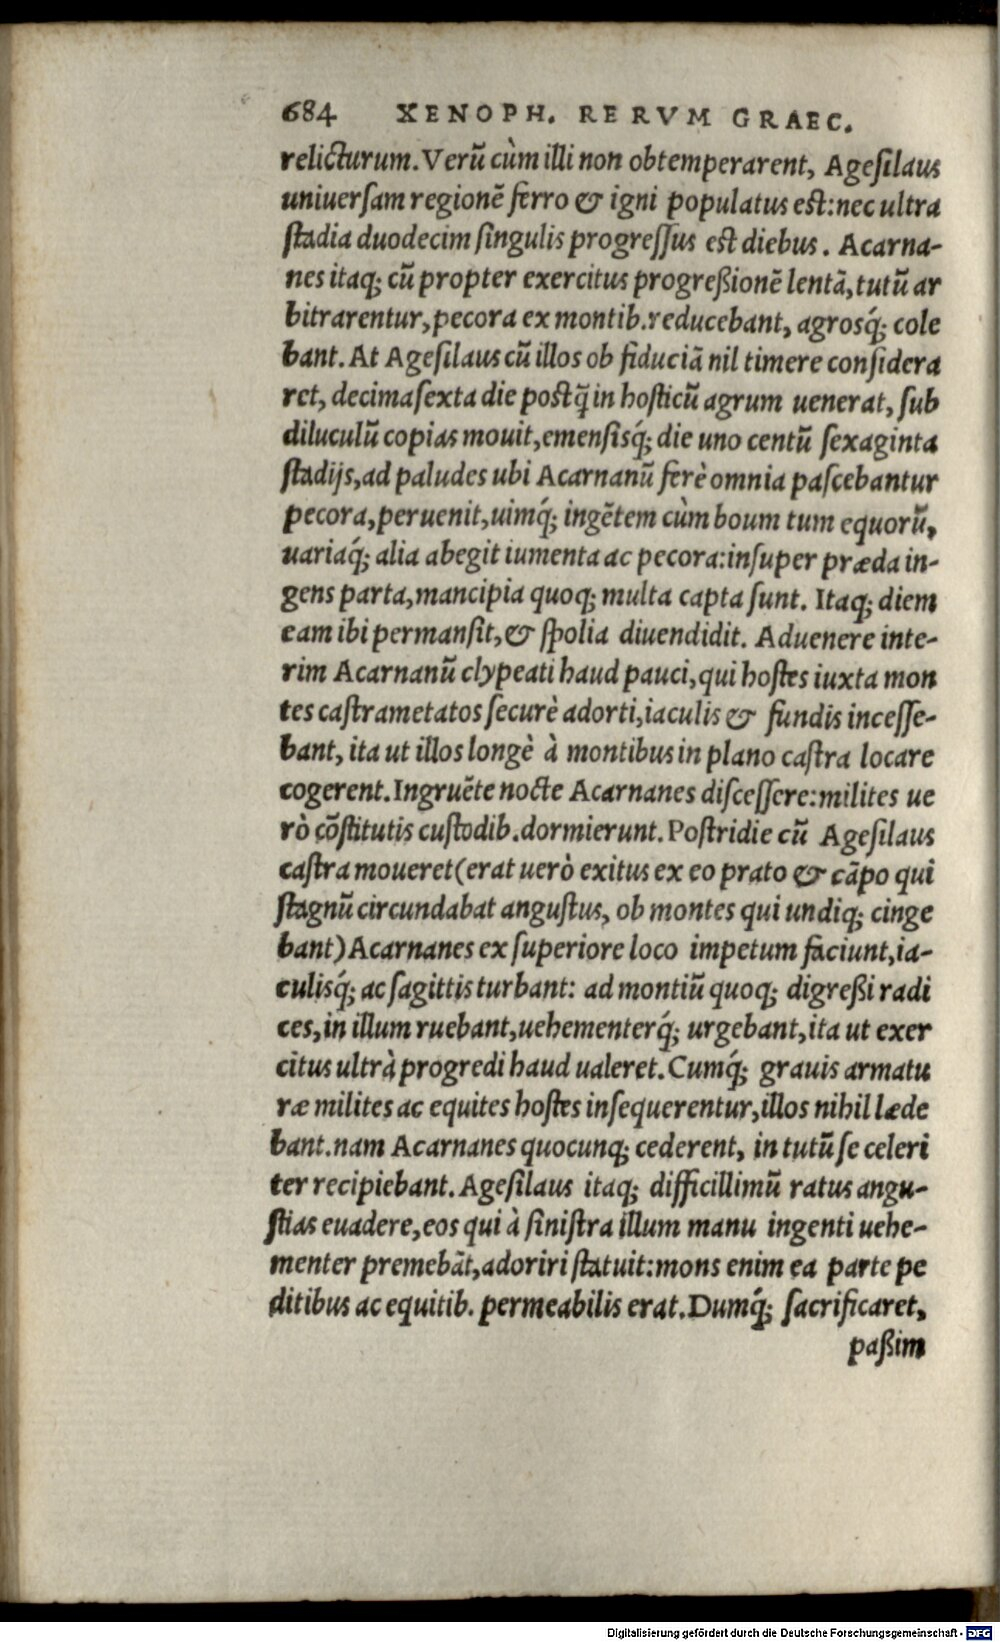 684 XENOPH. RERVM GRAEC.
relicturum. Verũ cùm illi non obtemperarent, Ageſilaus
uniuerſam regionẽ ferro & igni populatus est: nec ultra
ſtadia duodecim ſingulis progreſſus est diebus. Acarna-
nes itaq; cũ propter exercitus progreßionẽ lentã, tutũ ar
bitrarentur, pecora ex montib. reducebant, agrosq́; cole
bant. At Ageſilaus cũ illos ob fiduciã nil timere conſidera
ret, decimaſexta die postq̃ in hoſticũ agrum uenerat, ſub
diluculũ copias mouit, emenſisq́; die uno centũ ſexaginta
ſtadijs, ad paludes ubi Acarnanũ ferè omnia paſcebantur
pecora, peruenit, uimq́; ingẽtem cùm boum tum equorũ,
uariaq́; alia abegit iumenta ac pecora: inſuper præda in-
gens parta, mancipia quoq; multa capta ſunt. Itaq; diem
eam ibi permanſit, & ſpolia diuendidit. Aduenere inte-
rim Acarnanũ clypeati haud pauci, qui hoſtes iuxta mon
tes caſtrametatos ſecurè adorti, iaculis & fundis inceſſe-
bant, ita ut illos longè à montibus in plano caſtra locare
cogerent. Ingruẽte nocte Acarnanes diſceſſere: milites ue
rò cõſtitutis cuſtodib. dormierunt. Poſtridie cũ Ageſilaus
caſtra moueret (erat uerò exitus ex eo prato & cãpo qui
ſtagnũ circundabat anguſtus, ob montes qui undiq; cinge
bant) Acarnanes ex ſuperiore loco impetum faciunt, ia-
culisq́; ac ſagittis turbant: ad montiũ quoq; digreßi radi
ces, in illum ruebant, uehementerq́; urgebant, ita ut exer
citus ultrà progredi haud ualeret. Cumq́; grauis armatu
ræ milites ac equites hoſtes inſequerentur, illos nihil læde
bant. nam Acarnanes quocunq; cederent, in tutũ ſe celeri
ter recipiebant. Ageſilaus itaq; difficillimũ ratus angu-
ſtias euadere, eos qui à ſiniſtra illum manu ingenti uehe-
menter premebãt, adoriri ſtatuit: mons enim ea parte pe
ditibus ac equitib. permeabilis erat. Dumq́; ſacrificaret,
paßim
Digitalisierung gefördert durch die Deutsche Forschungsgemeinschaft - DFG